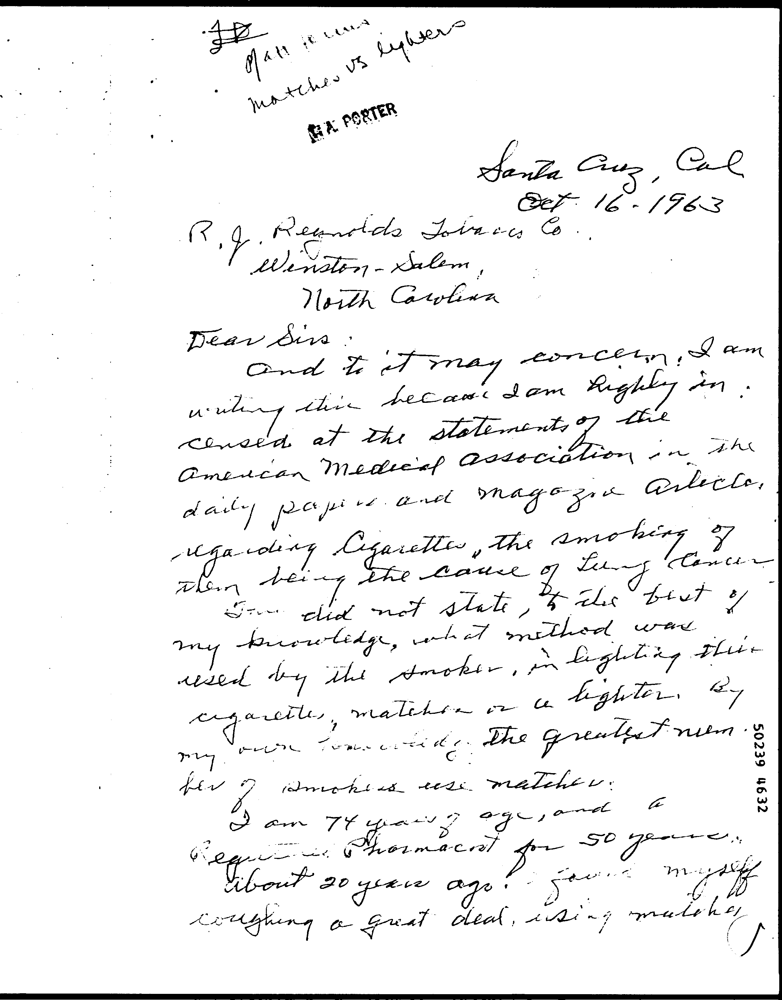 matches vs lighters
H.A. PORTER
Santa Cruz, Cal
Oct. 16-1963
R. J. Reynolds Tobacco Co.
Winston-Salem,
North Carolina
Dear Sirs:
and to it may concern, I am
writing this because I am highly in
censed at the statements of the
American Medical Association in the
daily papers and magazine articles,
regarding Cigarettes, the smoking of
them being the cause of Lung Cancer
did not state, to the best of
my knowledge, what method was
used by the smoker, in lighting their
cigarettes, matches or a lighter. By
my own knowledge the greatest num
ber of smokers use matches.
I am 74 years of age, and a
Registered Pharmacist for 50 years.
About 20 years ago I found myself
coughing a great deal, using matches
50239 4632